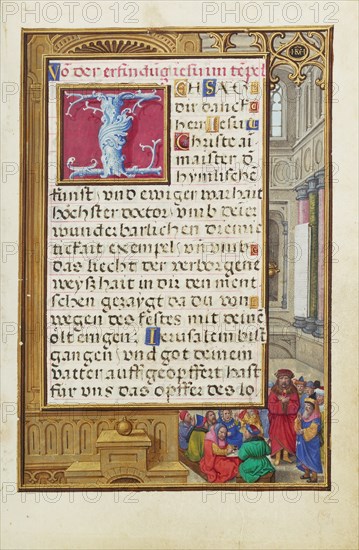 Vō der erfindūg iesu im tēpel
ICH SAG
dir danck
her Iesu
Christe ain
maister d
hymlische
kunst / vnd ewiger warhait
höchster doctor / vmb deier
wunderbarlichen diemie
tickait exempel / vn̄ vmb
das liecht der verborgēne
weyßhait in dir den men
schen gezaygt da du von
wegen des festes mit deinē
ölteingen / Ierusalem bist
gangen / vnd got deinem
vatter auffgeopffert hast
für vns das opffer des lo